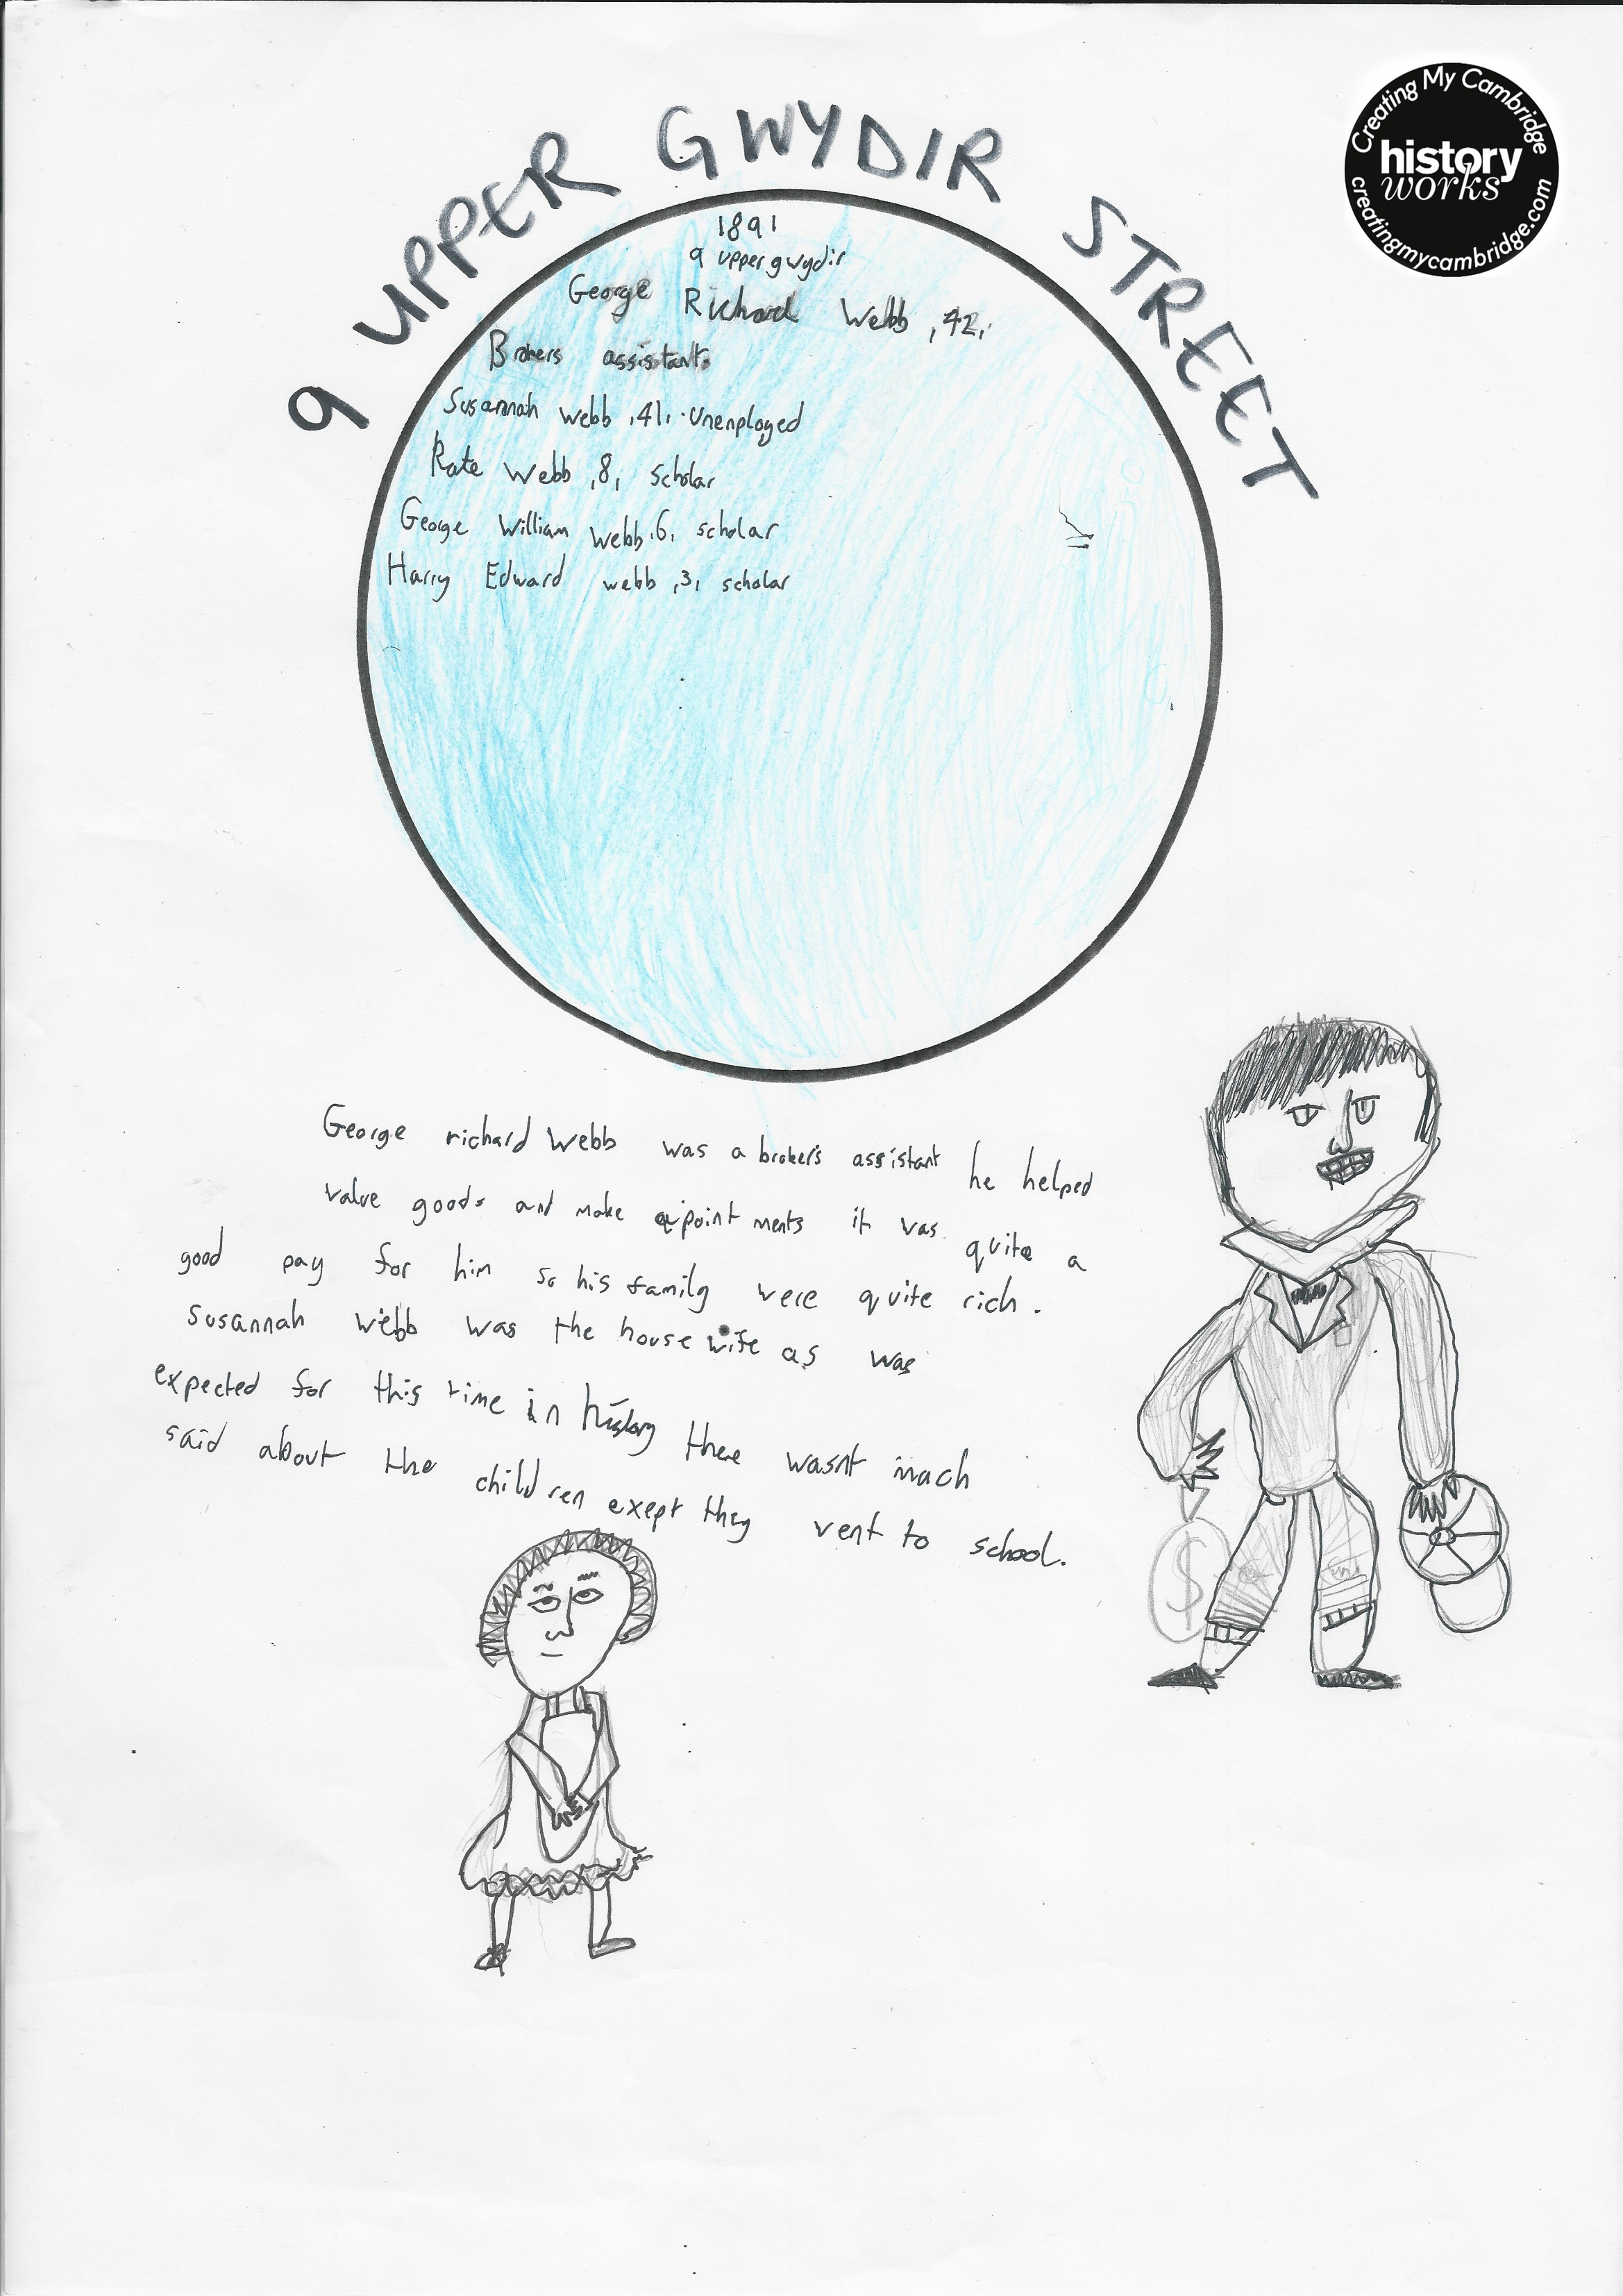 9 UPPER GWYDIR STREET
Creating My Cambridge
history
works
creatingmycambridge.com
1891
9 upper gwydir
George Richard Webb ,42,
Brokers assistant.
Susannah Webb ,41, Unenployed
Kate Webb ,8, scholar
George William Webb ,6, scholar
Harry Edward webb ,3, scholar
George richard Webb was a broker's assistant he helped
value goods and make apointments it was quite a
good pay for him so his family were quite rich.
Susannah Webb was the house wife as was
expected for this time in history there wasnt much
said about the children exept they went to school.
$